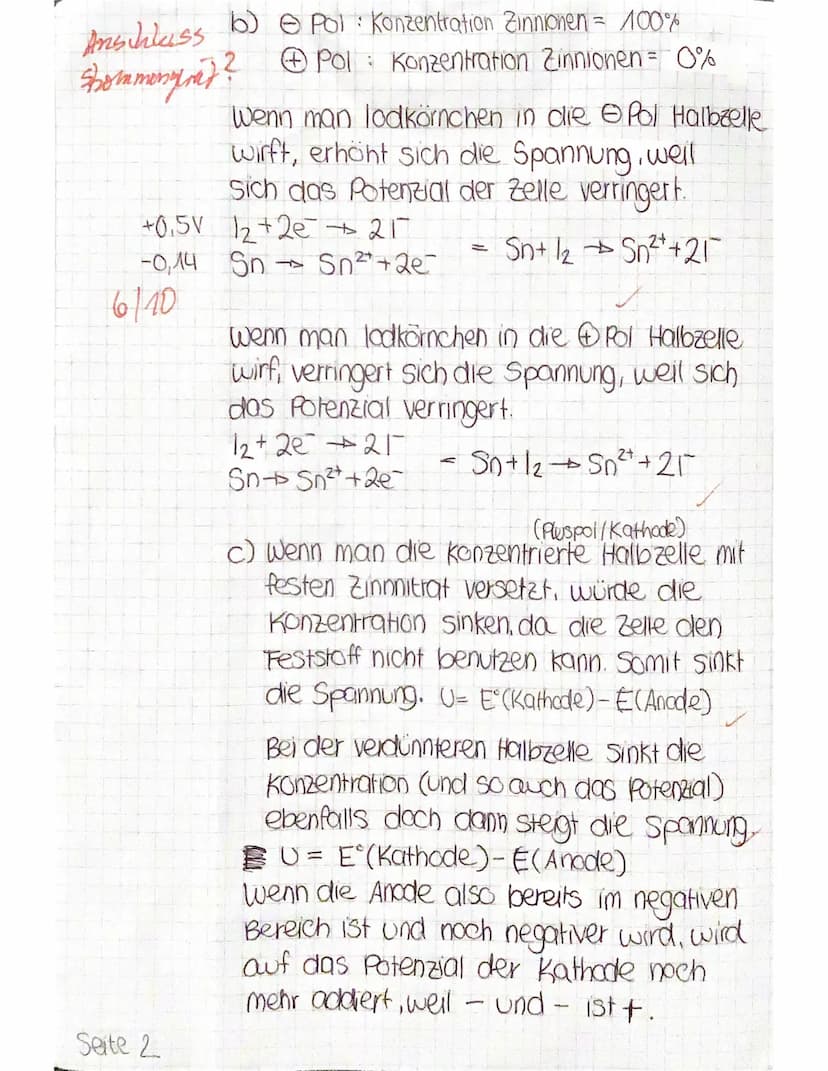 Anschluss
Strommessgerät?
b) ⊖ Pol : Konzentration Zinnionen = 100%
⊕ Pol : Konzentration Zinnionen = 0%
Wenn man Iodkörnchen in die ⊖ Pol Halbzelle
wirft, erhöht sich die Spannung, weil
sich das Potenzial der Zelle verringert.
+0,5V I₂ + 2e⁻ → 2I⁻
= Sn + I₂ → Sn²⁺ + 2I⁻
-0,14 Sn → Sn²⁺ + 2e⁻
6/10 ✓
Wenn man Iodkörnchen in die ⊕ Pol Halbzelle
wirf, verringert sich die Spannung, weil sich
das Potenzial verringert.
I₂ + 2e⁻ → 2I⁻
= Sn + I₂ → Sn²⁺ + 2I⁻
Sn → Sn²⁺ + 2e⁻
✓
(Pluspol/Kathode)
c) Wenn man die konzentrierte Halbzelle mit
festen Zinnnitrat versetzt, würde die
Konzentration sinken, da die Zelle den
Feststoff nicht benutzen kann. Somit sinkt
die Spannung. U= E°(Kathode)-E(Anode)
✓
Bei der verdünnteren Halbzelle sinkt die
Konzentration (und so auch das Potenzial)
ebenfalls doch dann steigt die Spannung.
U = E°(Kathode)-E(Anode)
Wenn die Anode also bereits im negativen
Bereich ist und noch negativer wird, wird
auf das Potenzial der Kathode noch
mehr addiert, weil - und - ist +.
Seite 2